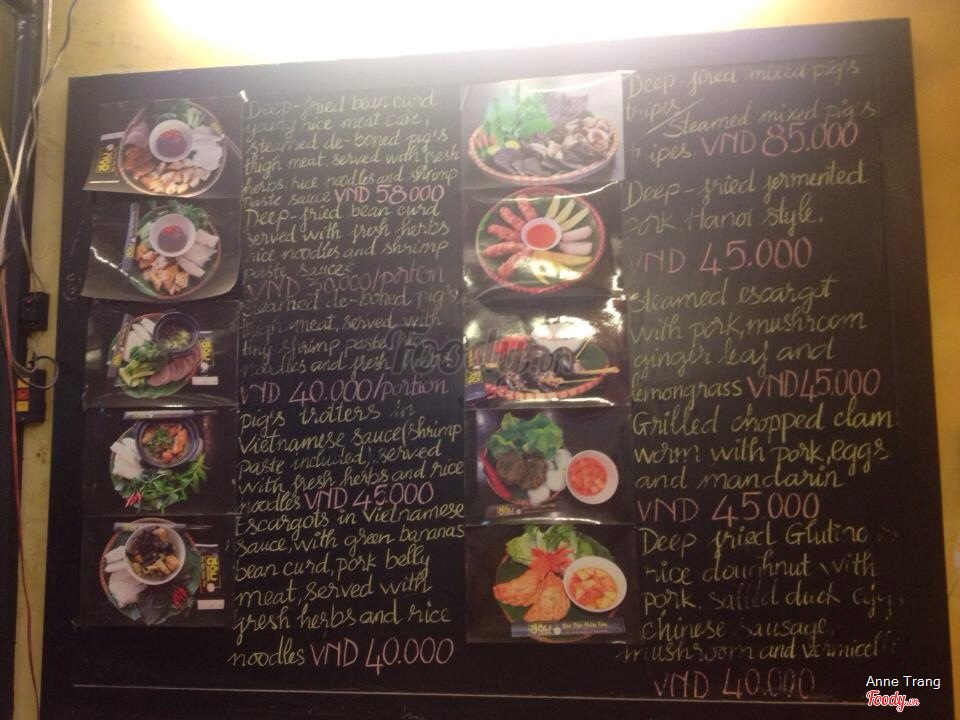 Deep-fried bean curd
young rice meat cake,
steamed de-boned pig's
thigh meat, served with fresh
herbs, rice noodles and shrimp
paste sauce VND 58.000
Deep-fried bean curd
served with fresh herbs
rice noodles and shrimp
paste sauce
VND 30,000/portion
Steamed de-boned, pig's
thigh meat, served with
tiny shrimp paste, rice
noodles and fresh herbs
VND 40.000/portion
Pig's trotters in
Vietnamese sauce (shrimp
paste included), served
with fresh herbs and rice
noodles VND 45.000
Escargots in Vietnamese
sauce, with green bananas
bean curd, pork belly
meat, served with
fresh herbs and rice
noodles VND 40.000
Deep-fired mixed pig's
tripes/Steamed mixed pig's
tripes VND 85.000
Deep-fried fermented
pork. Hanoi style.
VND 45.000
Steamed escargot
with pork, mushroom
ginger leaf and
lemongrass VND 45.000
Grilled chopped clam
worm with pork, eggs
and mandarin
VND 45.000
Deep fried Glutino s
rice doughnut with
pork, salted duck egg,
chinese sausage,
mushroom and vermicelli
VND 40.000
Foody.vn
Anne Trang
Foody.vn